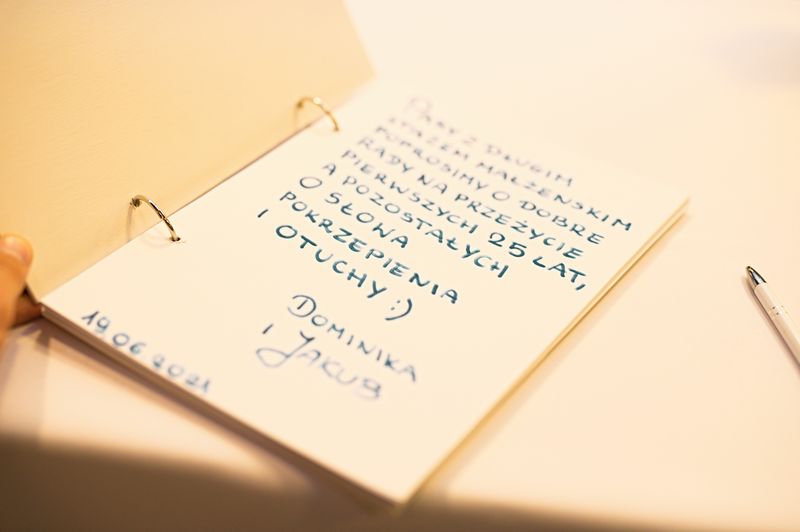 PARY Z DŁUGIM
STAŻEM MAŁŻEŃSKIM
POPROSIMY O DOBRE
RADY NA PRZEŻYCIE
PIERWSZYCH 25 LAT,
A POZOSTAŁYCH
O SŁOWA
POKRZEPIENIA
I OTUCHY :)
DOMINIKA
i JAKUB
19.06.2021